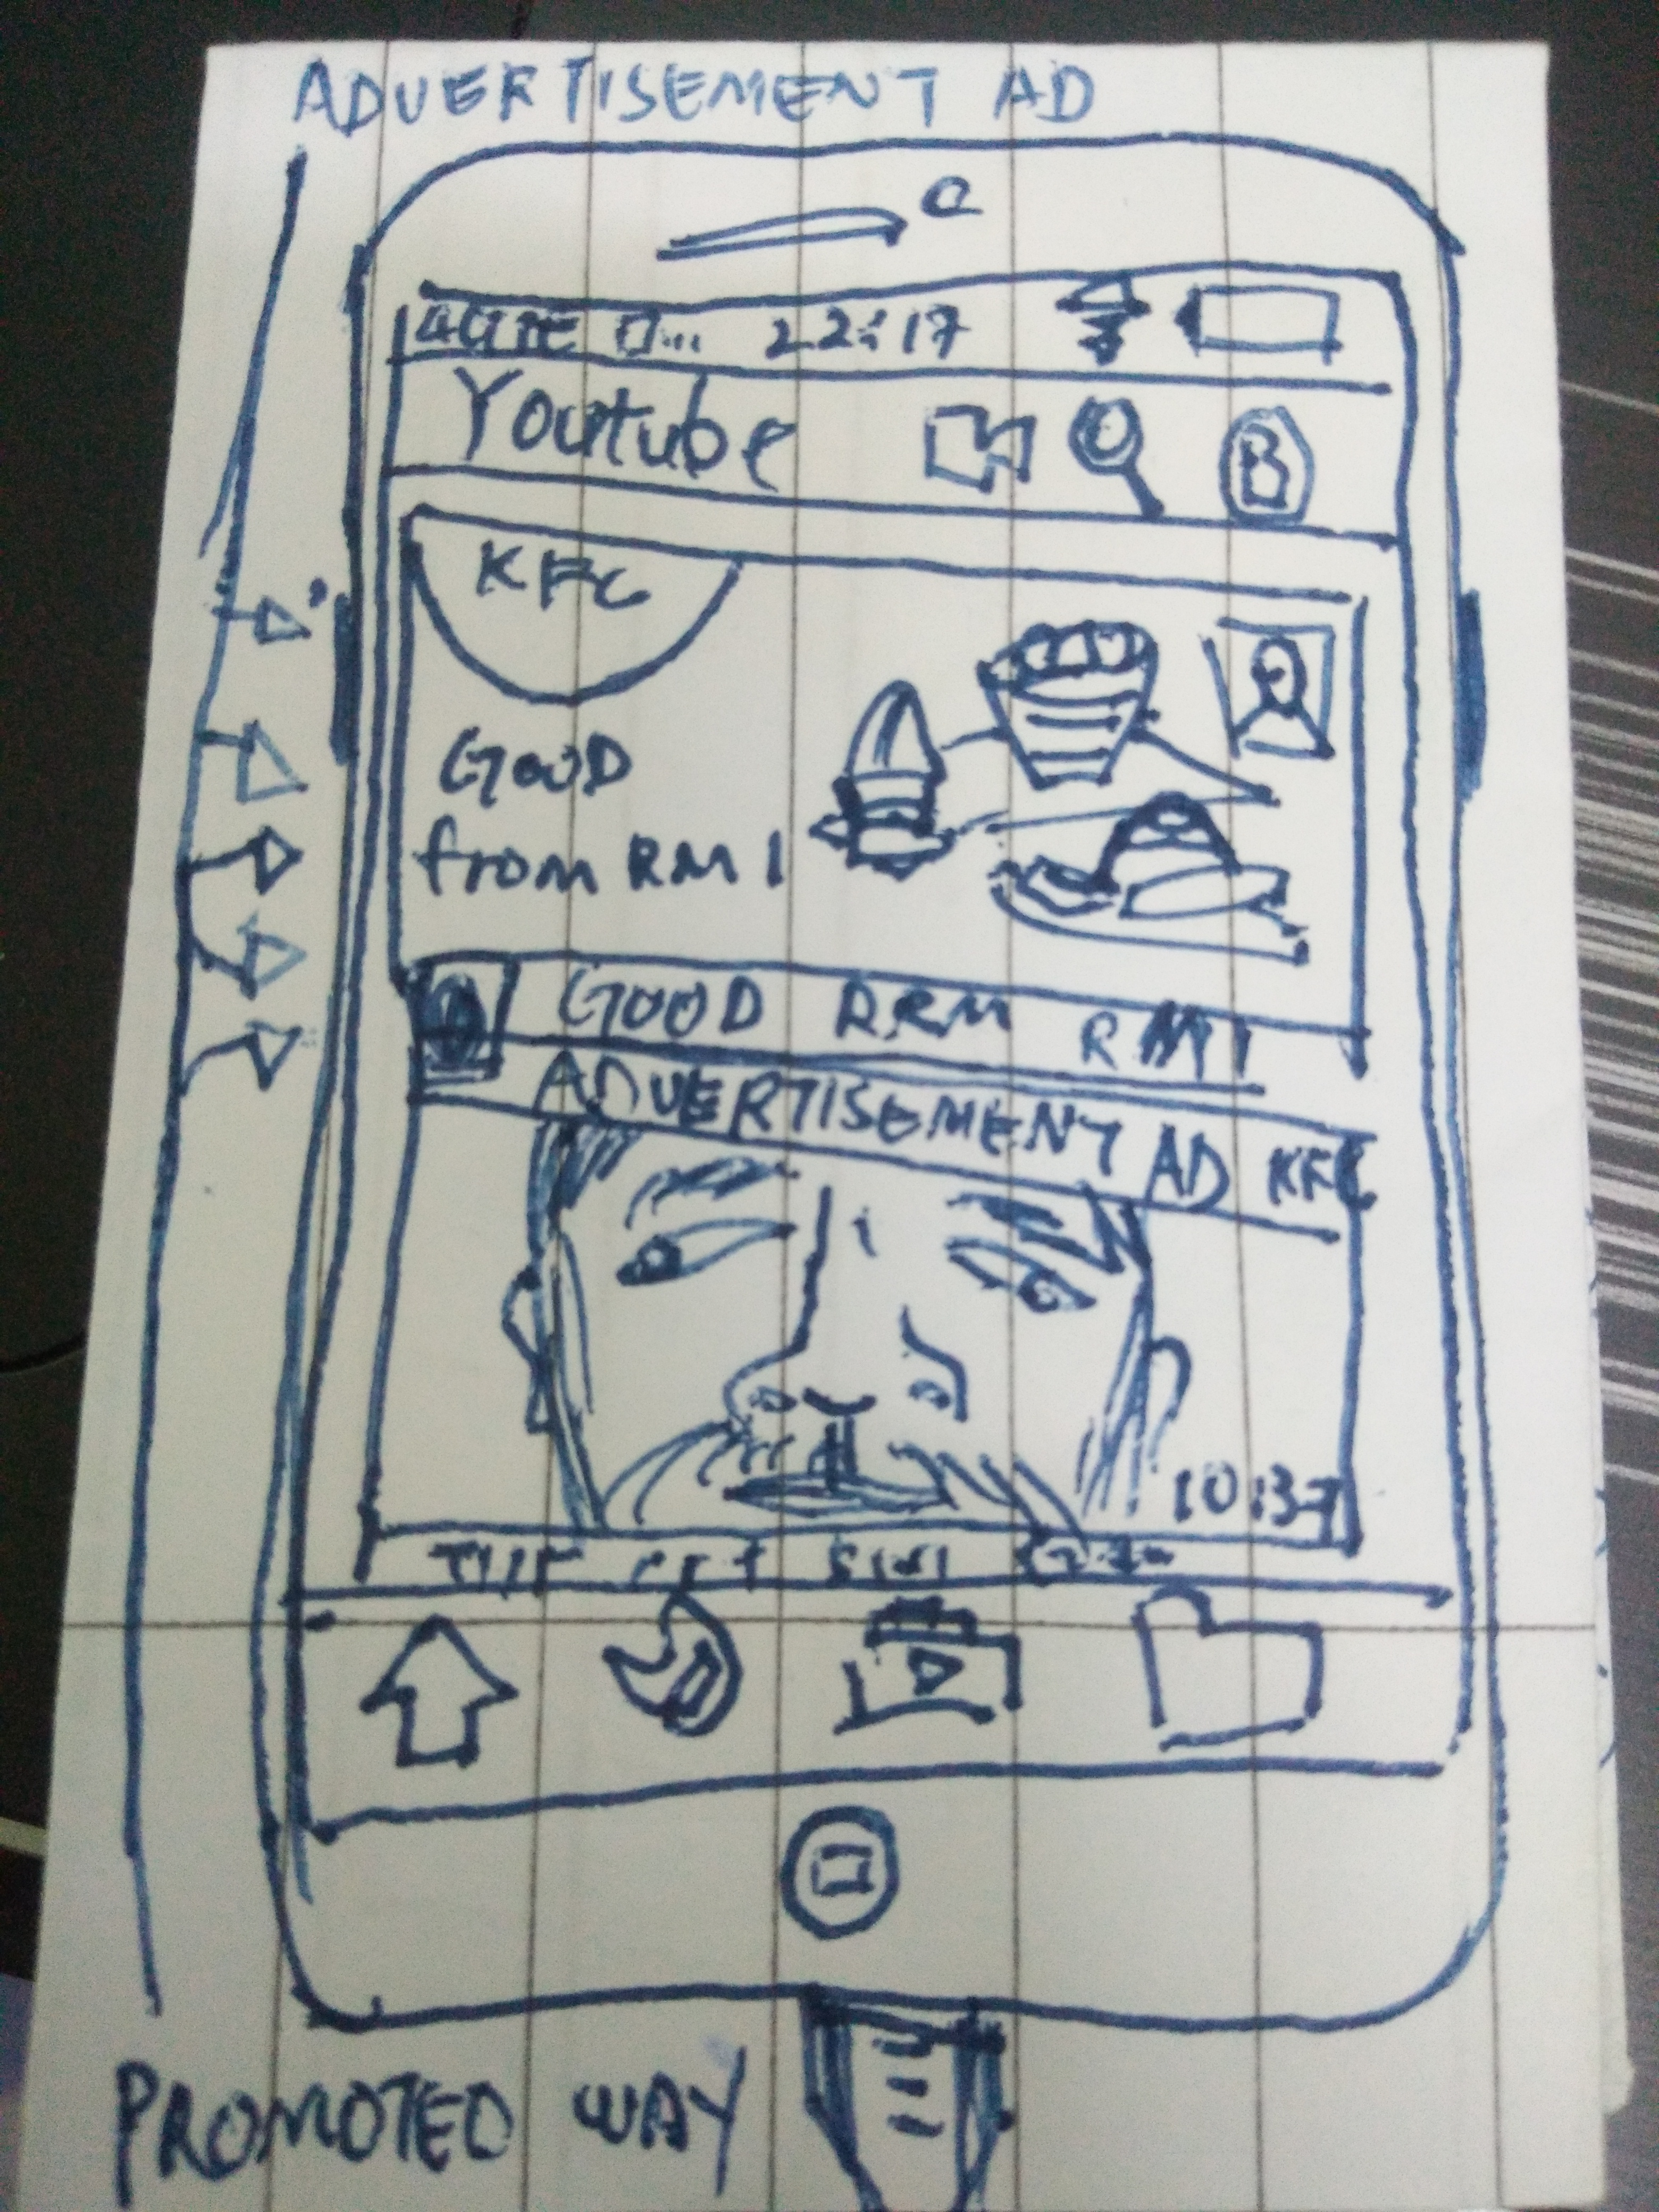 ADVERTISEMENT AD
22:17
Youtube
B
KFC
GOOD
from RM 1
GOOD RM 1
ADVERTISEMENT AD KFC
10:37
PROMOTED WAY